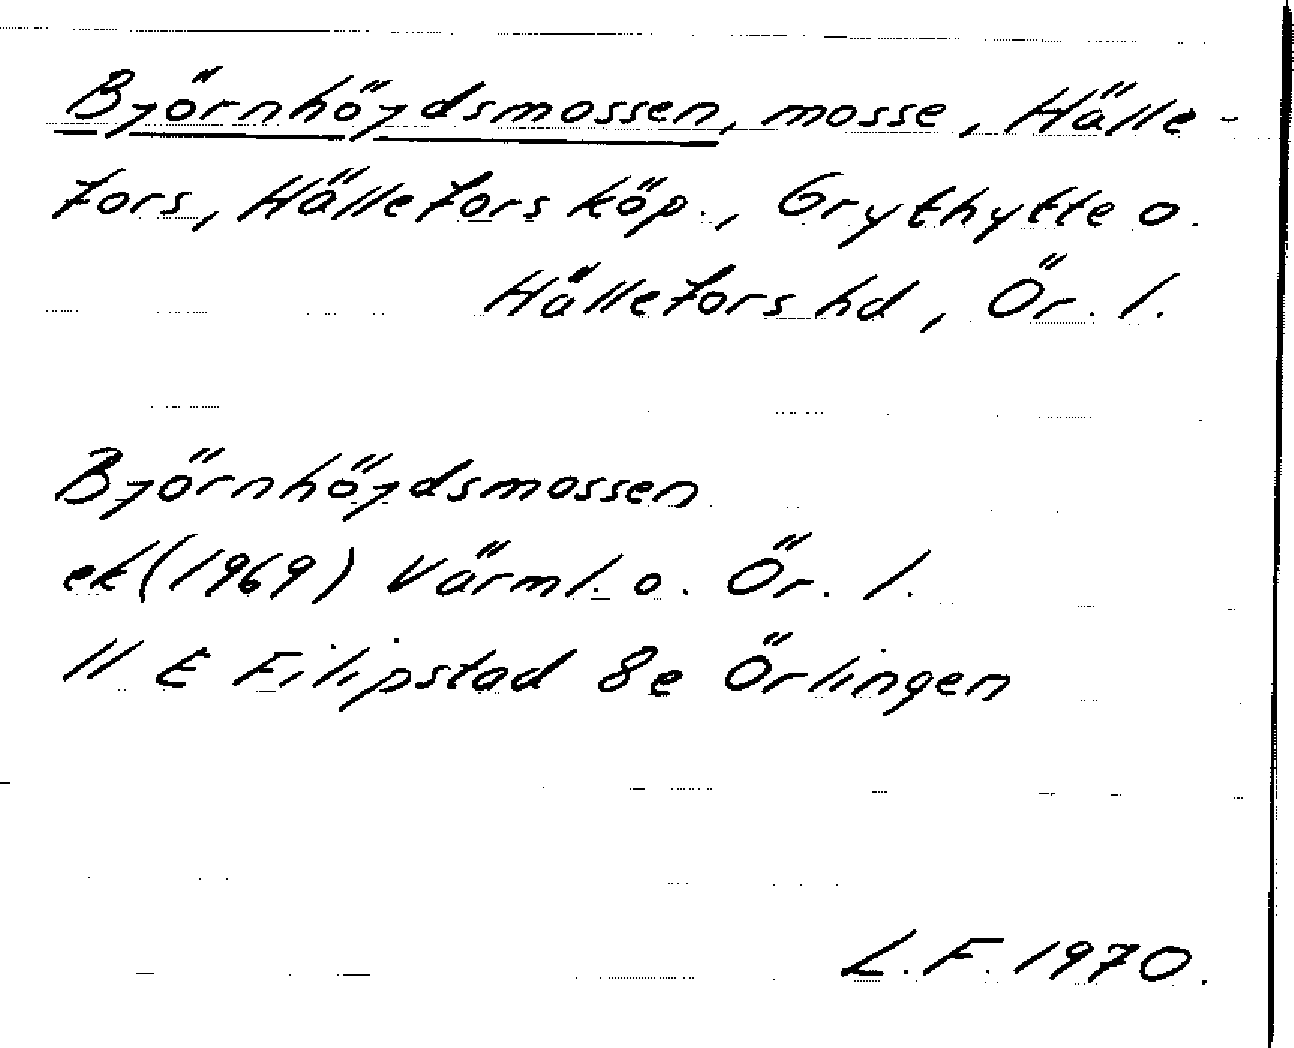 Björnhöjdsmossen, mosse, Hälle-
fors, Hällefors köp., Grythytte o.
Hällefors hd, Ör. l.
Björnhöjdsmossen
ek (1969) Värml. o. Ör. l.
11 E Filipstad 8e Örlingen
L.F. 1970.